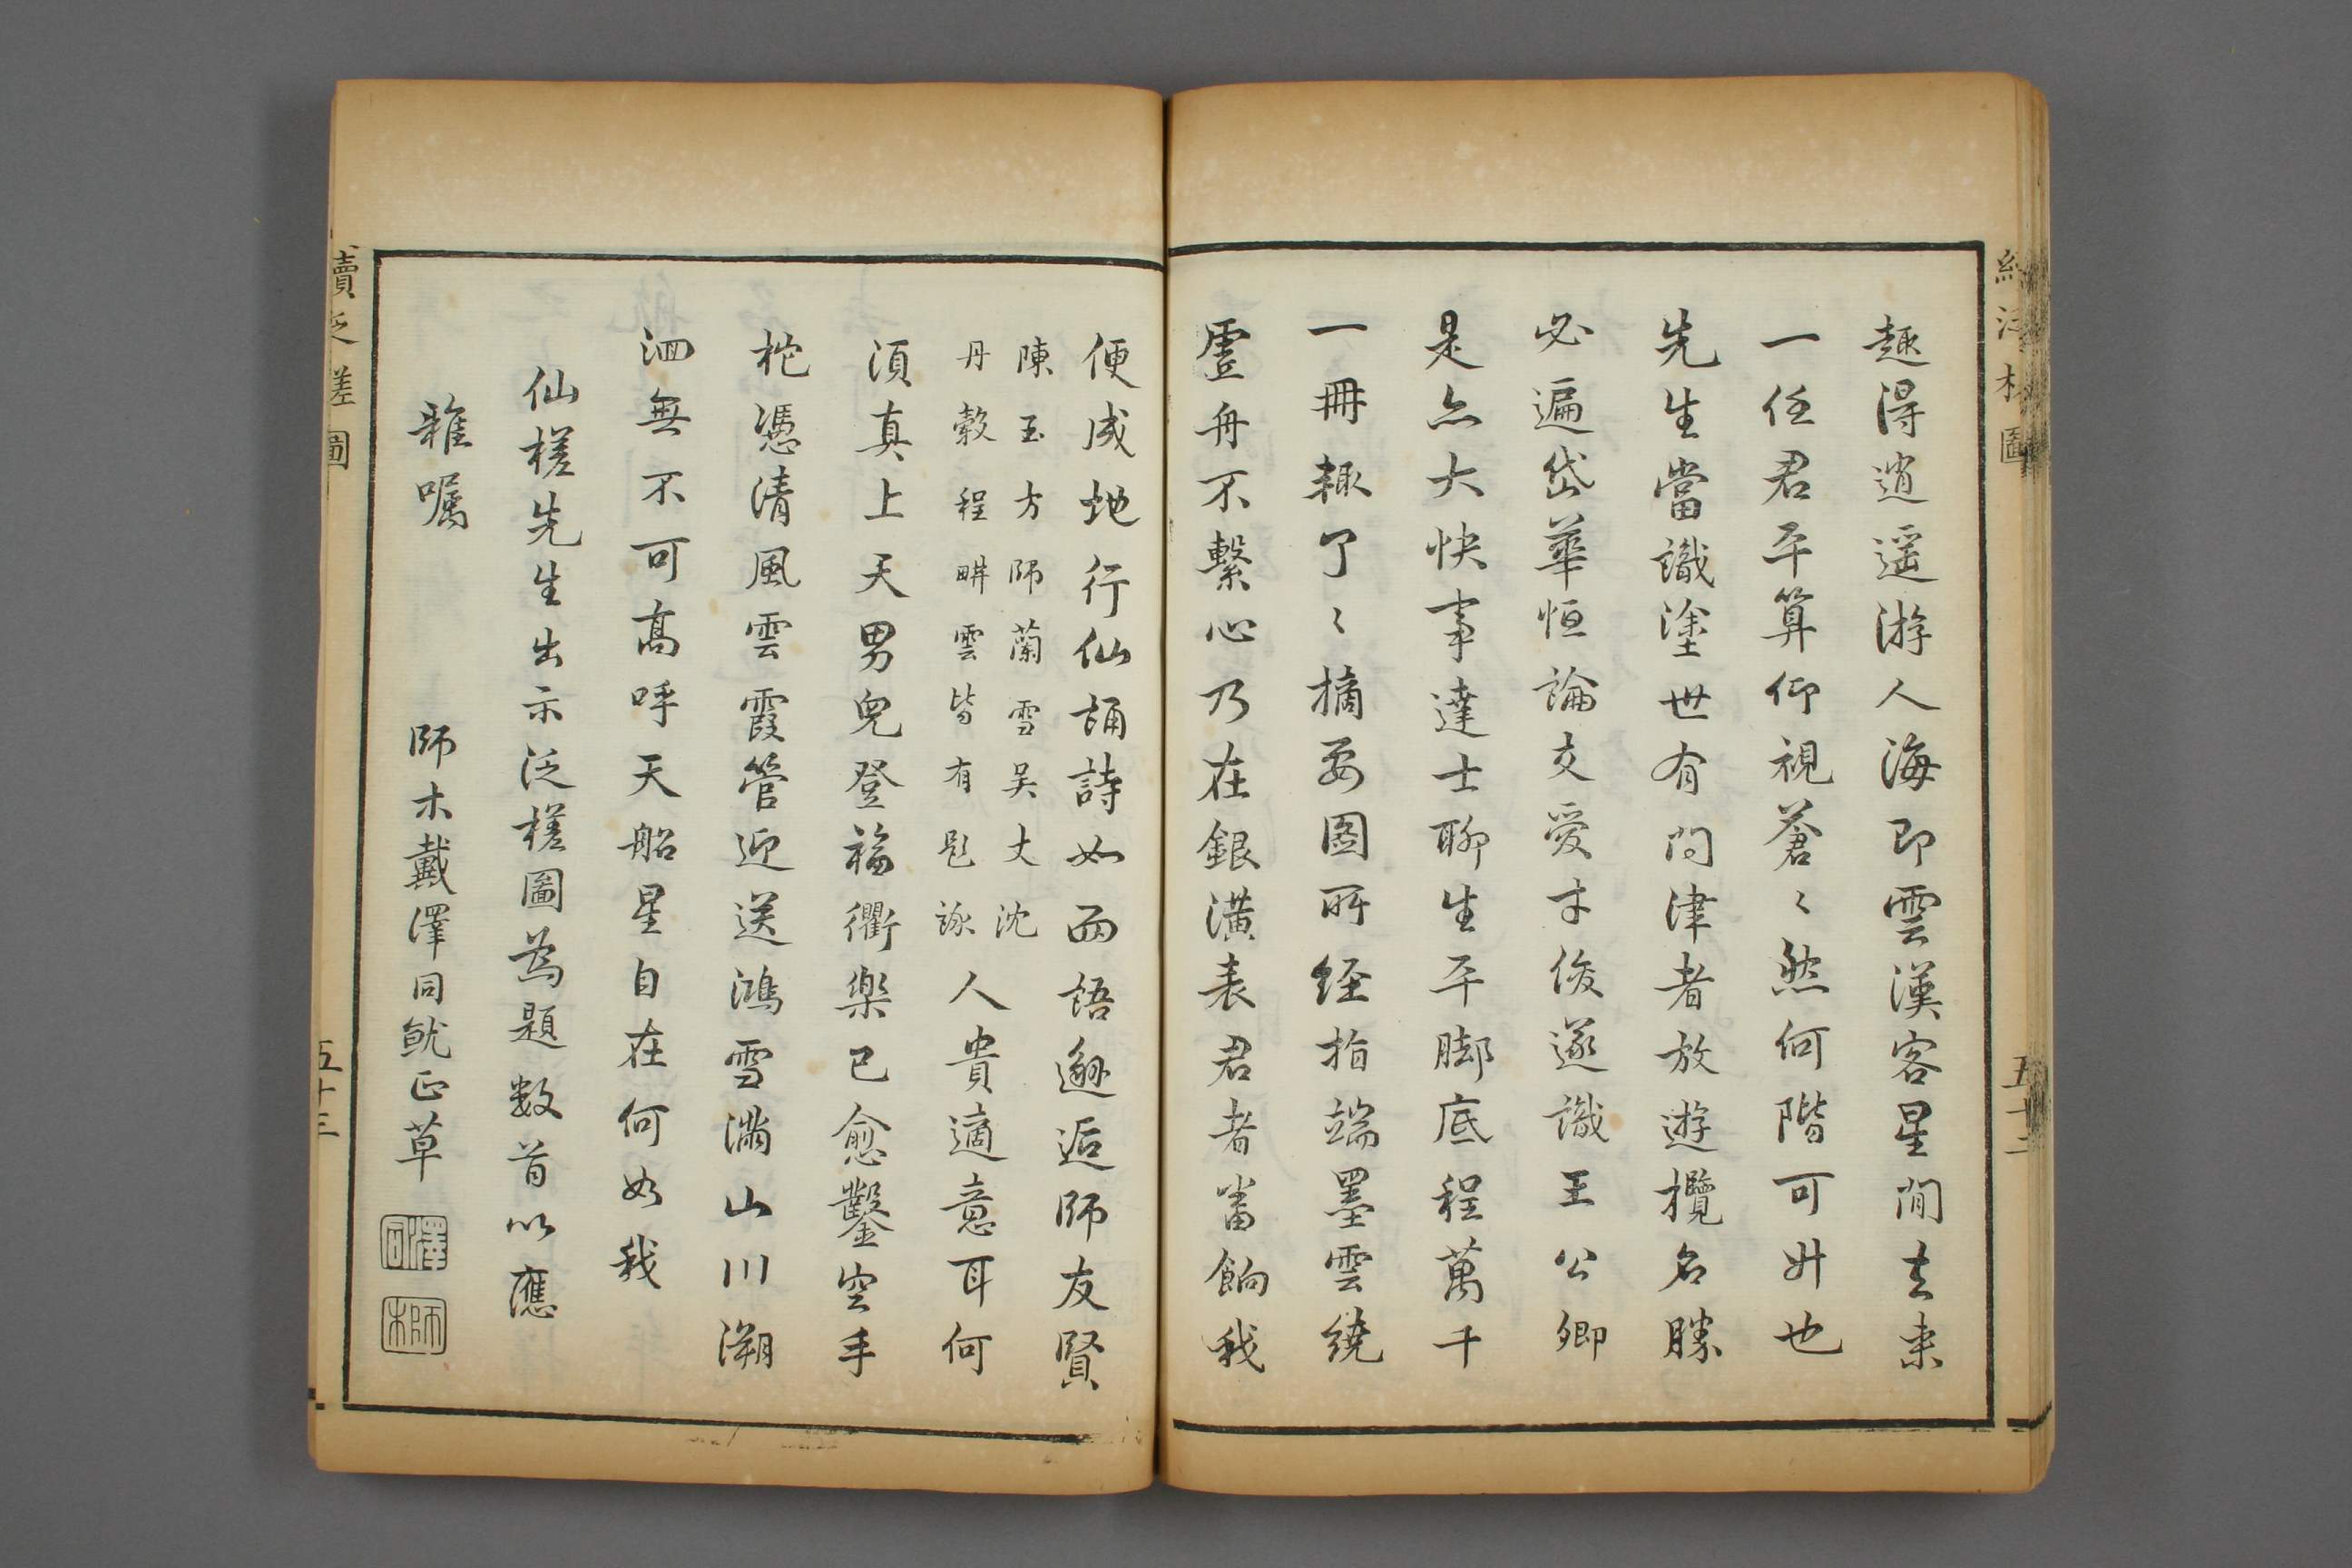 趣得逍遥游人海即雲漢客星閒去来
一任君平算仰視蒼〻然何階可升也
先生當識塗世有問津者放遊攬名勝
必遍岱華恒論交愛才俊遂識王公卿
是亦大快事達士聊生平脚底程萬千
一冊輒了〻摘要圖所經指端墨雲繞
虛舟不繫心乃在銀潢表君者當餉我
便成地行仙誦詩如面語邂逅師友賢
陳玉方師蘭雪吳丈沈
丹穀程畊雲皆有題詠
人貴適意耳何
須真上天男兒登福衢樂已愈鑿空手
柁憑清風雲霞管迎送鴻雪滿山川溯
洄無不可高呼天船星自在何如我
仙槎先生出示泛槎圖為題數首以應
雅囑
師木戴澤同皈正草
澤同
師木
續泛槎圖
五十二
續泛槎圖
五十三